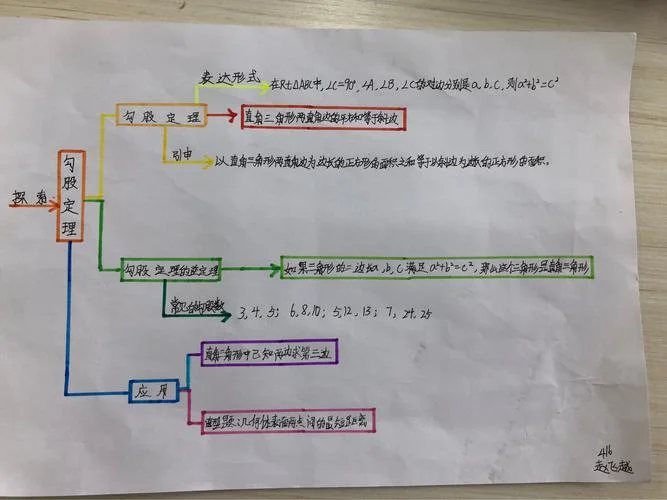 探索
勾股定理
勾股定理
表达形式
在Rt△ABC中,∠C=90°,∠A,∠B,∠C的对边分别是a,b,c,则a²+b²=c²
直角三角形两直角边的平方和等于斜边
引申
以直角三角形两直角边为边长的正方形的面积之和等于以斜边为边长的正方形的面积。
勾股定理的逆定理
如果三角形的三边长a,b,c满足a²+b²=c²,那么这个三角形是直角三角形
常见的勾股数
3,4,5; 6,8,10; 5,12,13; 7,24,25
应用
直角三角形中已知两边求第三边
典型题:几何体表面两点间的最短距离
416
赵飞越